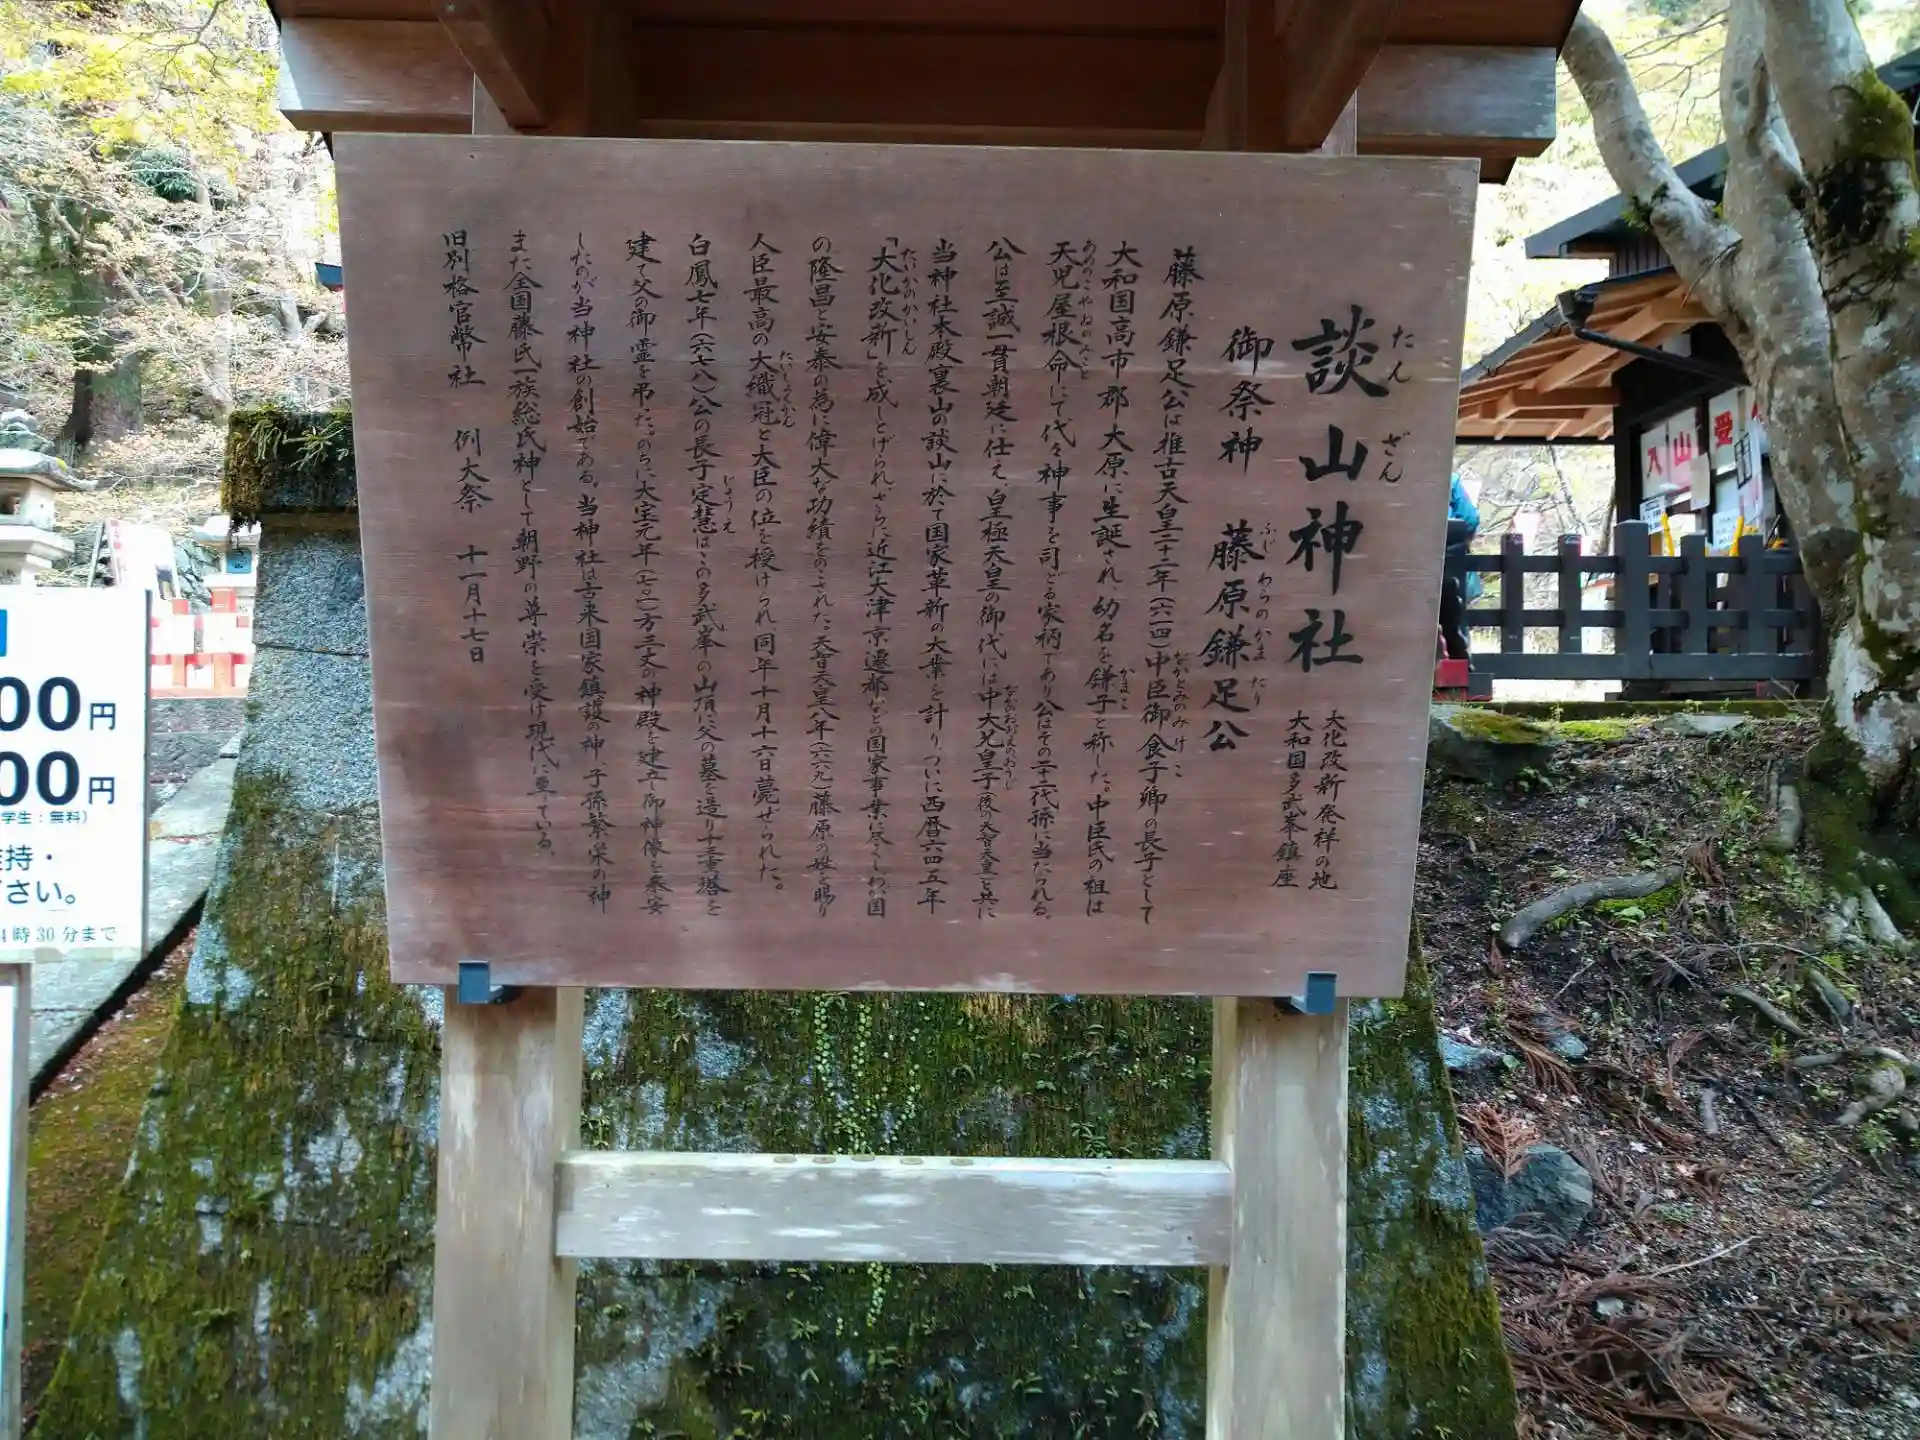 談山神社
たん ざん
大化改新発祥の地
大和国多武峯鎮座
御祭神 藤原鎌足公
ふじ わらのかま たり
藤原鎌足公は推古天皇二十二年(六一四)中臣御食子卿の長子として
なかとみのみけ こ
大和国高市郡大原に生誕され、幼名を鎌子と称した。中臣氏の祖は
かまこ
天児屋根命にて代々神事を司どる家柄であり公はその二十二代孫に当たられる。
あめのこやねのみこと
公は至誠一貫朝廷に仕え、皇極天皇の御代には中大兄皇子(後の天智天皇)と共に
なかのおおえのおうじ
当神社本殿裏山の談山に於て国家革新の大業を計り、ついに西暦六四五年
「大化改新」を成しとげられ、さらに近江大津京遷都などの国家事業に尽くしわが国
たいかのかいしん
の隆昌と安泰の為に偉大な功績をのこされた。天智天皇八年(六六九)藤原の姓を賜り
人臣最高の大織冠と大臣の位を授けられ、同年十月十六日薨ぜられた。
たいしょくかん
白鳳七年(六七八)公の長子定慧はこの多武峯の山頂に父の墓を造り十三重塔を
じょうえ
建て父の御霊を弔た。のちに大宝元年(七〇一)方三丈の神殿を建立し御神像を奉安
したのが当神社の創始である。当神社は古来国家鎮護の神、子孫繁栄の神
また全国藤氏一族総氏神として朝野の尊崇を受け現代に至っている。
旧別格官幣社 例大祭 十一月十七日
00円
00円
学生:無料)
持・
さい。
4時30分まで
入山
受